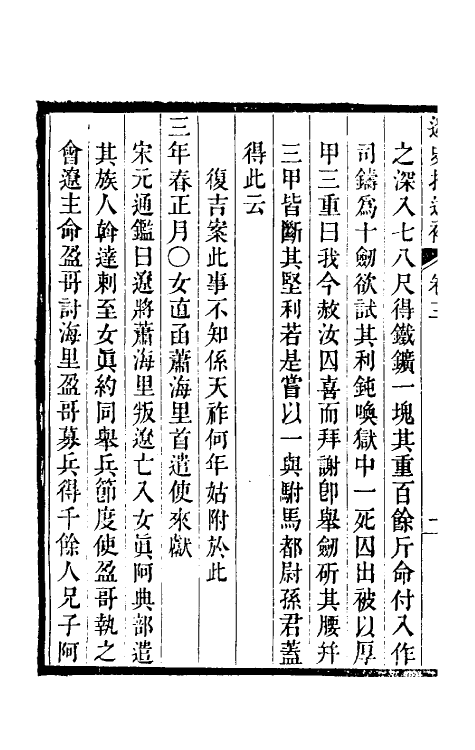 遼史拾遺補 卷三
之深入七八尺得鐵鑛一塊其重百餘斤命付入作
司鑄爲十劒欲試其利鈍喚獄中一死囚出被以厚
甲三重曰我今赦汝囚喜而拜謝卽舉劒斫其腰幷
三甲皆斷其堅利若是嘗以一與駙馬都尉孫君蓋
得此云
復吉案此事不知係天祚何年姑附於此
三年春正月〇女直函蕭海里首遣使來獻
宋元通鑑曰遼將蕭海里叛遼亡入女眞阿典部遣
其族人斡達剌至女眞約同舉兵節度使盈哥執之
會遼主命盈哥討海里盈哥募兵得千餘人兄子阿